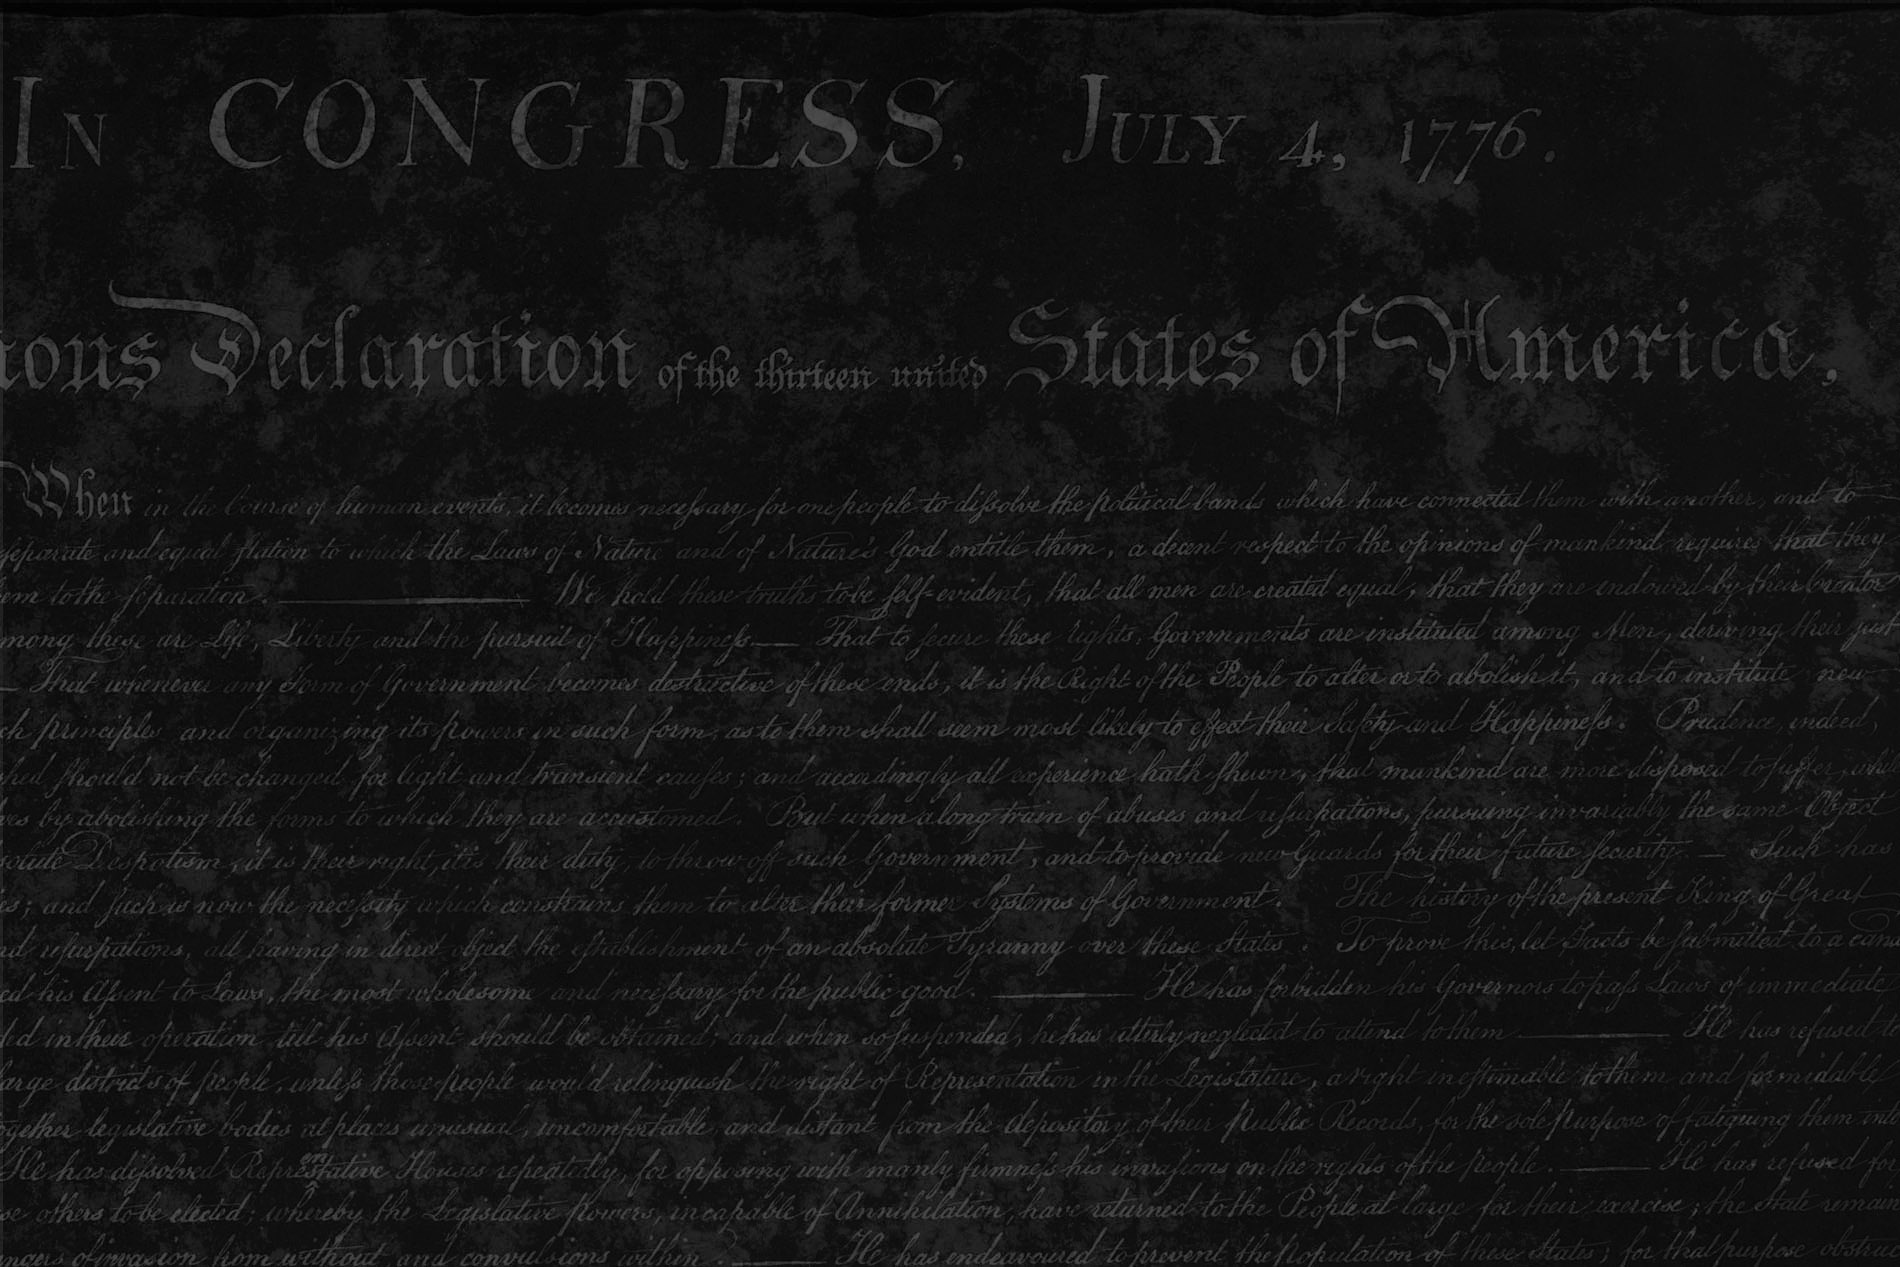 In CONGRESS, July 4, 1776.
ous Declaration of the thirteen united States of America,
When in the Course of human events, it becomes necessary for one people to dissolve the political bands which have connected them with another, and to
separate and equal station to which the Laws of Nature and of Nature's God entitle them, a decent respect to the opinions of mankind requires that they
em to the separation. We hold these truths to be self-evident, that all men are created equal, that they are endowed by their Creator
mong these are Life, Liberty and the pursuit of Happiness.— That to secure these rights, Governments are instituted among Men, deriving their just
— That whenever any Form of Government becomes destructive of these ends, it is the Right of the People to alter or to abolish it, and to institute new
ch principles and organizing its powers in such form, as to them shall seem most likely to effect their Safety and Happiness. Prudence, indeed,
hed should not be changed for light and transient causes; and accordingly all experience hath shewn, that mankind are more disposed to suffer, whi
ves by abolishing the forms to which they are accustomed. But when a long train of abuses and usurpations, pursuing invariably the same Object
solute Despotism, it is their right, it is their duty, to throw off such Government, and to provide new Guards for their future security.— Such has
es; and such is now the necessity which constrains them to alter their former Systems of Government. The history of the present King of Great
nd usurpations, all having in direct object the establishment of an absolute Tyranny over these States. To prove this, let Facts be submitted to a cand
ed his Assent to Laws, the most wholesome and necessary for the public good. He has forbidden his Governors to pass Laws of immediate
ded in their operation till his Assent should be obtained; and when so suspended, he has utterly neglected to attend to them. He has refused t
large districts of people, unless those people would relinquish the right of Representation in the Legislature, a right inestimable to them and formidable
ogether legislative bodies at places unusual, uncomfortable, and distant from the depository of their Public Records, for the sole purpose of fatiguing them into
He has dissolved Representative Houses repeatedly, for opposing with manly firmness his invasions on the rights of the people. He has refused for
se others to be elected; whereby the Legislative powers, incapable of Annihilation, have returned to the People at large for their exercise; the State remain
ngers of invasion from without, and convulsions within. He has endeavoured to prevent the population of these States; for that purpose obstruc